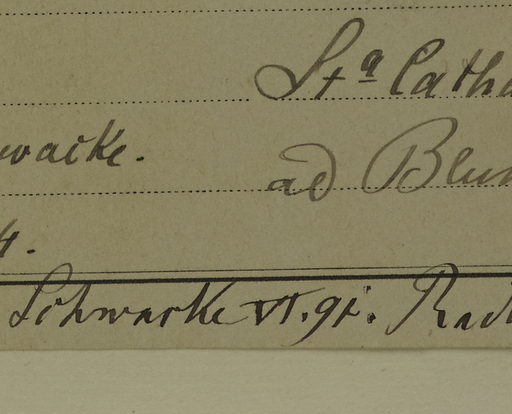 Sta Catha
wacke.
ad Blum
4.
Schwacke VI. 91. Rad